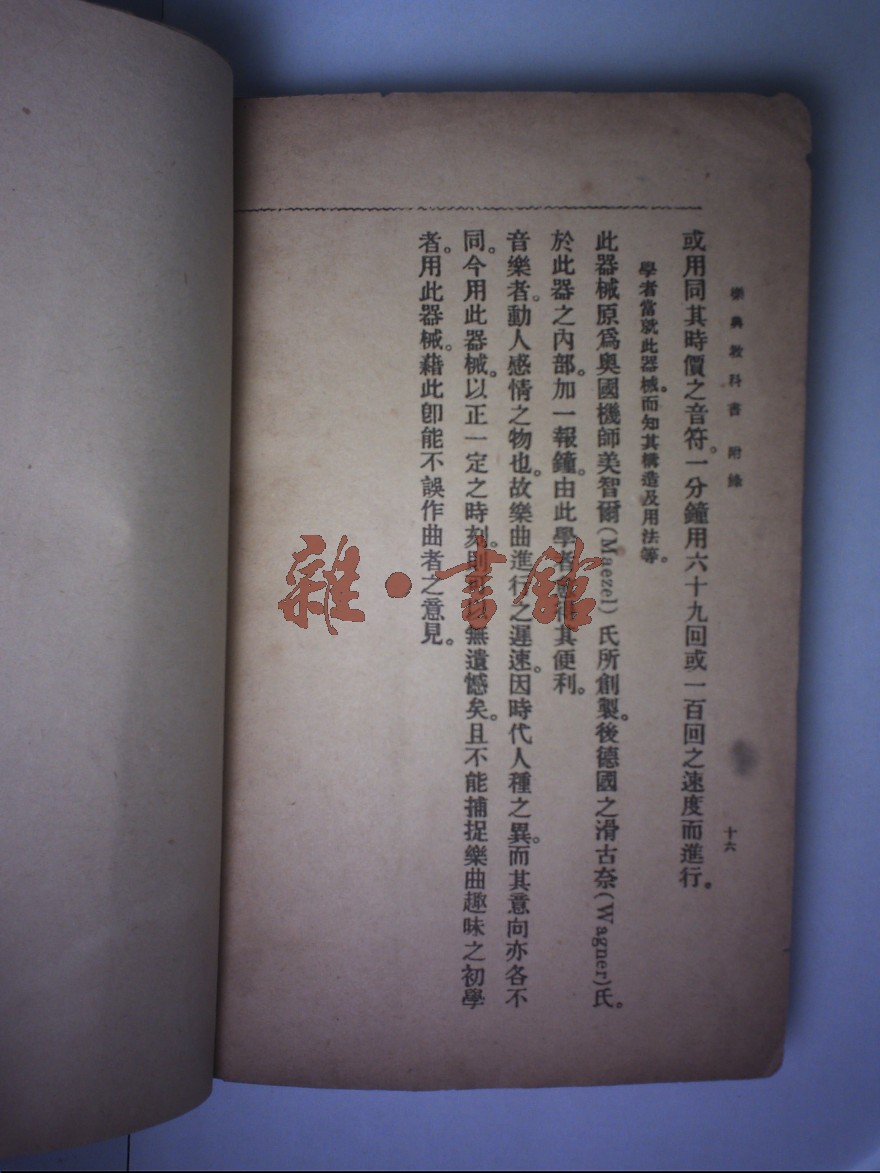 樂典教科書 附錄
十六
或用同其時價之音符。一分鐘用六十九回或一百回之速度而進行。
學者當就此器械。而知其構造及用法等。
此器械原爲奧國機師美智爾(Maezel)氏所創製。後德國之滑古奈(Wagner)氏。
於此器之內部。加一報鐘。由此學者 得其便利。
音樂者。動人感情之物也。故樂曲進行之遲速。因時代人種之異。而其意向亦各不
同。今用此器械。以正一定之時刻。則可以無遺憾矣。且不能捕捉樂曲趣味之初學
者。用此器械。藉此卽能不誤作曲者之意見。
雜·書館